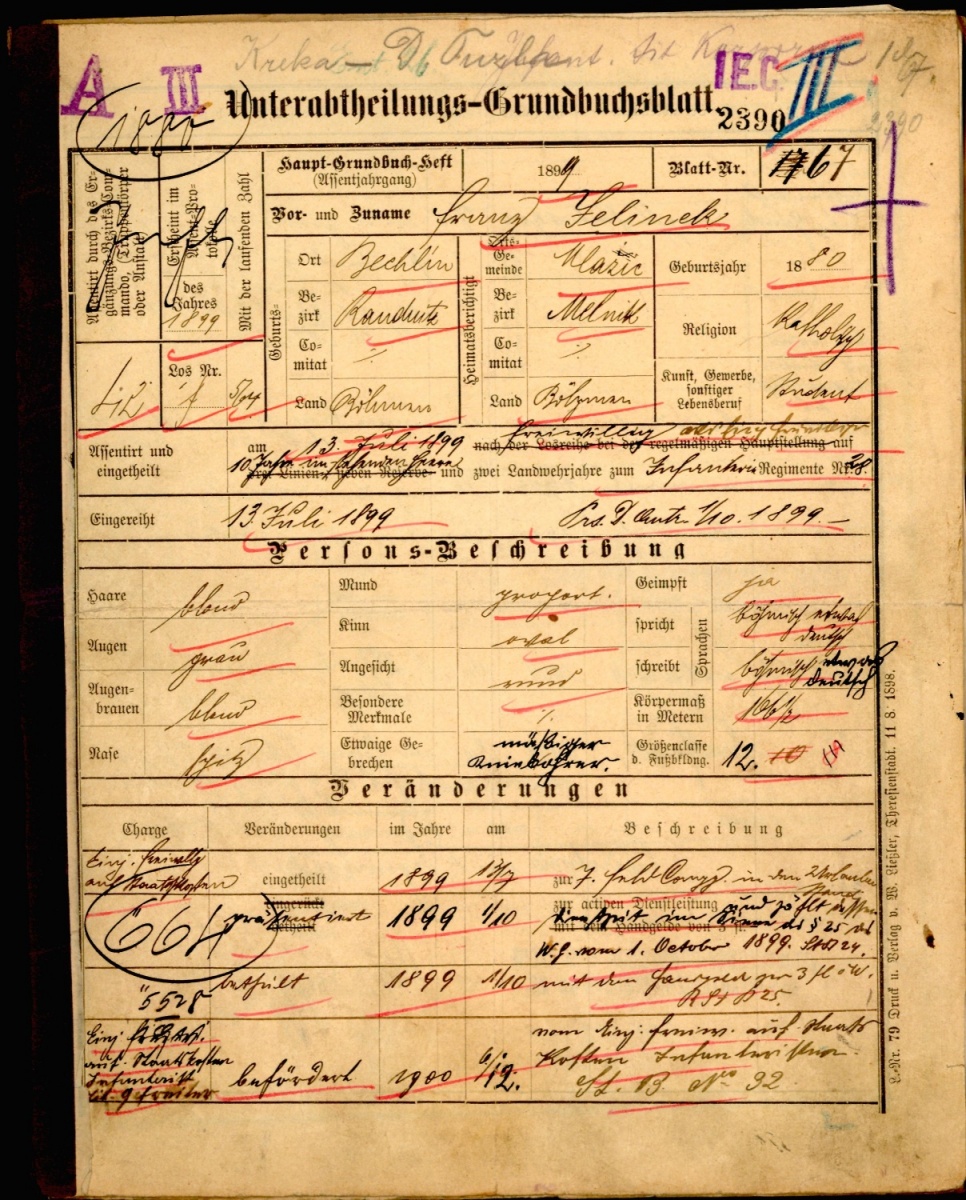 Kreka
A III
I.E.G. III
1880
Unterabtheilungs-Grundbuchsblatt
2390
2390
Assentirt durch das Ergänzungs-Bezirks-Commando, (Truppenkörper oder Anstalt)
Erscheint im Assent-Protokolle
des Jahres
1899
Mit der laufenden Zahl
Los Nr.
Haupt-Grundbuch-Heft
(Assentjahrgang)
1899
Blatt-Nr.
67
Vor- und Zuname
Franz Jelinek
Geburts-
Ort
Bechlin
Bezirk
Raudnitz
Comitat
·/·
Land
Böhmen
Heimatsberichtigt
Orts-Gemeinde
Mlazic
Bezirk
Melnik
Comitat
·/·
Land
Böhmen
Geburtsjahr
1880
Religion
Katholisch
Kunst, Gewerbe, sonstiger Lebensberuf
Student
Assentirt und eingetheilt
am 13. Juli 1899
freiwillig
nach der Losreihe bei der regelmäßigen Hauptstellung auf
10 Jahre im stehenden Heere
drei Linien-, sieben Reserve- und zwei Landwehrjahre zum Infanterie Regimente Nr. 28.
Eingereiht
13. Juli 1899
Prs. D. 1/10. 1899.
Persons-Beschreibung
Haare
blond
Augen
grau
Augenbrauen
blond
Nase
spitz
Mund
proport.
Kinn
oval
Angesicht
rund
Besondere Merkmale
·/.
Etwaige Gebrechen
mässiger
Kniebohrer.
Geimpft
ja
Sprachen
spricht
böhmisch etwas
deutsch
schreibt
böhmisch etwas
deutsch
Körpermaß in Metern
166½
Größenclasse d. Fußbkldng.
12. 10
Veränderungen
Charge
Veränderungen
im Jahre
am
Beschreibung
Einj. Freiwillig
auf Staatskosten
eingetheilt
1899
13/7
zur 7. Feld Comp. in den Urlauber
stand
664
eingerückt
präsentirt
betheilt
1899
1/10
zur activen Dienstleistung und zählt dessen
Dienstzeit im Sinne des § 25 des
mit dem Handgelde von 3 fl.
W.G. vom 1. October 1899.
5528
betheilt
1899
1/10
mit dem Handgeld per 3 fl ö.W.
Einj. Freiw.
auf Staatskosten
Infanterist
tit. Gefreiter
befördert
1900
6/12.
vom Einj. Freiw. auf Staats
Kosten Infanteristen
St. B. No 92
L.-Nr. 79 Druck u. Verlag v. W. Ließler, Theresienstadt. 11 8. 1898.